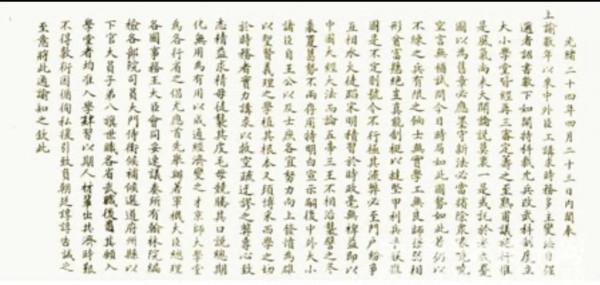 光緒二十四年四月二十三日內閣奉
上諭數年以來中外臣工講求時務多主變法自强
邇者詔書數下如開特科裁冗兵改武科制度立
大小學堂皆經再三審定籌之至熟甫議施行惟
是風氣尚未大開論說莫衷一是或託於老成憂
國以為舊章必應墨守新法必當擯除衆喙嘵嘵
空言無補試問今日時局如此國勢如此若仍以
不練之兵有限之餉士無實學工無良師强弱相
形貧富懸絕豈真能制梃以撻堅甲利兵乎朕惟
國是不定則號令不行極其流弊必至門户紛爭
互相水火徒蹈宋明積習於時政毫無裨益即以
中國大經大法而論五帝三王不相沿襲譬之冬
裘夏葛勢不兩存用特明白宣示嗣後中外大小
諸臣自王公以及士庶各宜努力向上發憤為雄
以聖賢義理之學植其根本又須博采西學之切
於時務者實力講求以救空疏迂謬之弊專心致
志精益求精毋徒襲其皮毛毋競騰其口說總期
化無用為有用以成通經濟變之才京師大學堂
為各行省之倡尤應首先舉辦著軍機大臣總理
各國事務王大臣會同妥速議奏所有翰林院編
檢各部院司員大門侍衛候補候選道府州縣以
下官大員子弟八旗世職各省武職後裔其願入
學堂者均准入學肄習以期人材輩出共濟時艱
不得敷衍因循徇私援引致負朝廷諄諄告誡之
至意將此通諭知之欽此